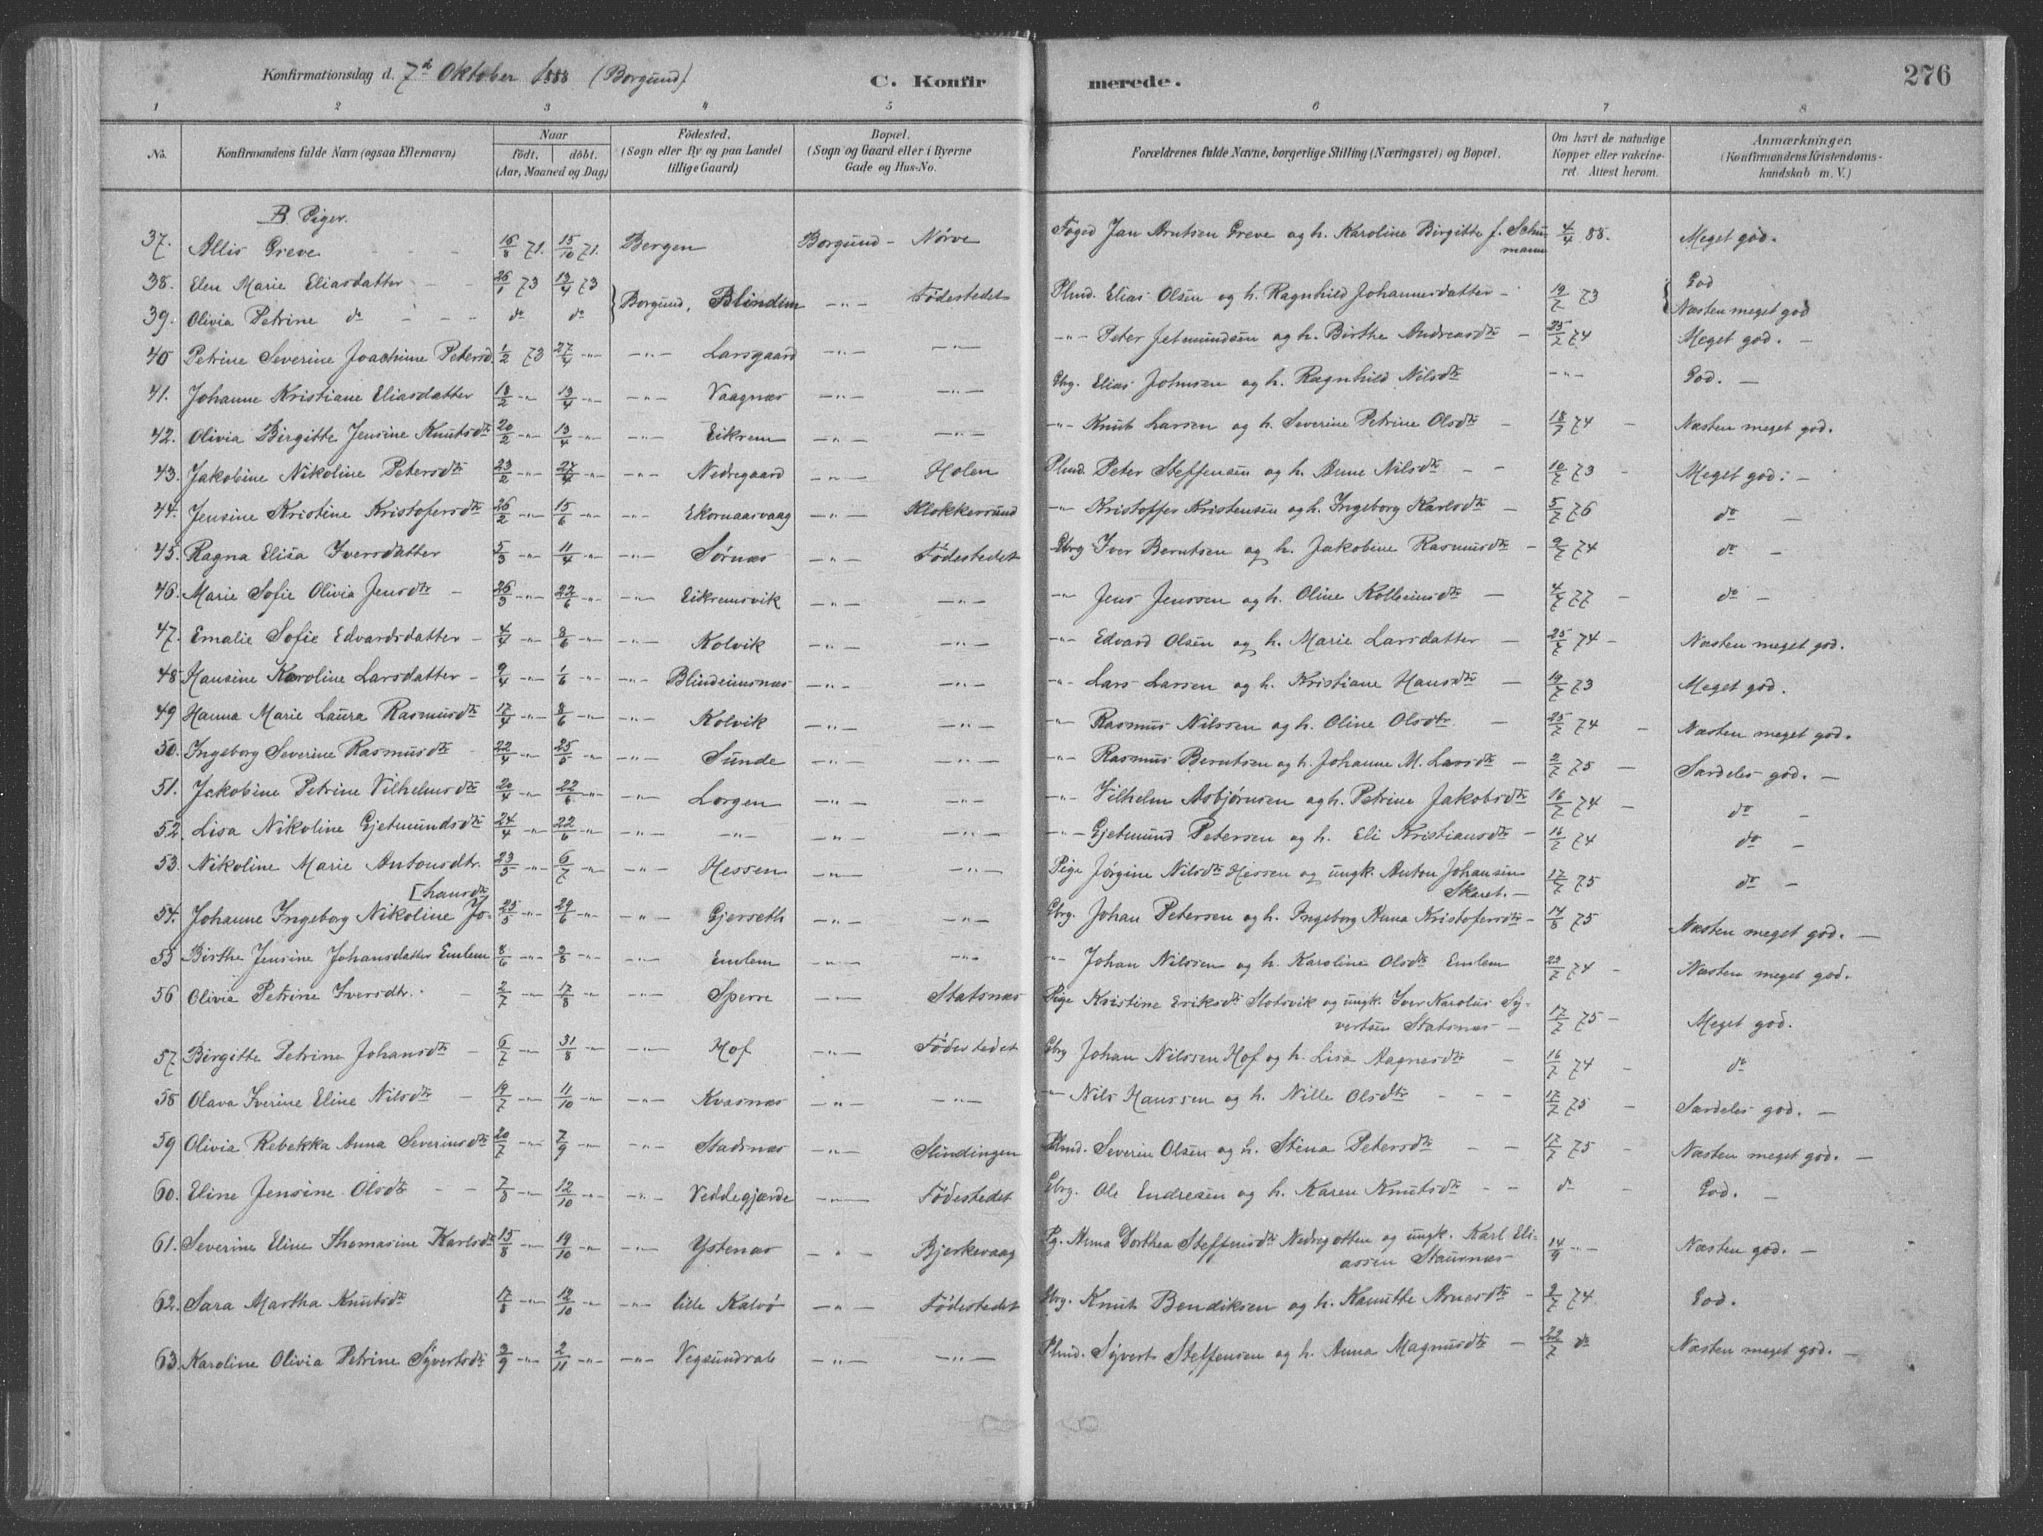 Konfirmationsdag d. 7d Oktober 1888 (Borgund)
C. Konfir merede. 276
1 2 3 4 5 6 7 8
No. Konfirmandens fulde Navn (ogsaa Efternavn) Naar født. døbt. (Aar, Maaned og Dag) Fødested. (Sogn eller By og paa Landet tillige Gaard) Bopæl. (Sogn og Gaard eller i Byerne Gade og Hus-No. Forældrenes fulde Navne, borgerlige Stilling (Næringsvei) og Bopæl. Om havt de naturlige Kopper eller vakcineret. Attest herom. Anmærkninger. (Konfirmandens Kristendomskundskab m. V.)
B. Piger.
37. Allis Greve 16/8 71. 15/10 71. Bergen Borgund - Nørve Foged Jan Arntsen Greve og h. Karoline Birgitte f. Schumann 4/4 88. Meget god.
38. Elen Marie Eliasdatter 26/1 73 13/4 73 Borgund, Blindem -"- Fødestedet Plmd. Elias Olsen og h. Ragnhild Johannesdatter 19/7 73 God
39. Olivia Petrine do do do Næsten meget god
40 Petrine Severine Joachime Petersd. 1/2 73 27/4 -"- -"- Larsgaard -"- -"- -"- Peter Jetmundsen og h. Birthe Andreasdtr 25/7 74 Meget god.
41. Johanne Kristiane Eliasdatter 18/2 -"- 13/4 -"- -"- Vaagnæs -"- -"- Gbrg. Elias Johnsen og h. Ragnhild Nilsdtr -"- God.
42. Olivia Birgitte Jensine Knutsdtr 20/2 -"- 13/4 -"- -"- Eikrem -"- -"- -"- Knut Larsen og h. Severine Petrine Olsdtr 18/7 74 Næsten meget god.
43. Jakobine Nikoline Petersdtr 23/2 -"- 27/4 -"- -"- Nedregaard -"- Holen Plmd. Peter Steffensen og h. Anne Nilsdtr 10/7 73 Meget god.
44. Jensine Kristine Kristofersdtr 26/2 -"- 15/6 -"- -"- Ekornaasvaag -"- Klokkersund -"- Kristoffer Kristensen og h. Ingeborg Karlsdtr 5/7 76 do
45. Ragna Elisa Iversdatter 5/3 -"- 11/4 -"- -"- Sørnæs -"- Fødestedet Gbrg Iver Berntsen og h. Jakobine Rasmusdtr 9/7 74 do
46. Marie Sofie Olivia Jensdtr 26/3 -"- 22/6 -"- -"- Eikremsvik -"- -"- -"- Jens Jenssen og h. Oline Kolbeinsdtr 4/7 77 do
47. Emalie Sofie Edvardsdatter 4/4 -"- 8/6 -"- -"- Kolvik -"- -"- -"- Edvard Olsen og h. Marie Larsdatter 25/7 74 Næsten meget god.
48 Hansine Karoline Larsdatter 9/4 -"- 1/6 -"- -"- Blindeimsnæs -"- -"- -"- Lars Larsen og h. Kristiane Hansdtr 19/7 73 Meget god.
49 Hanna Marie Laura Rasmusdtr 17/4 -"- 8/6 -"- -"- Kolvik -"- -"- -"- Rasmus Nilssen og h. Oline Olsdtr 25/7 74 Næsten meget god.
50. Ingeborg Severine Rasmusdtr 22/4 -"- 25/5 -"- -"- Sunde -"- -"- -"- Rasmus Berntsen og h. Johanne M. Larsdtr 2/7 75 Særdeles god.
51. Jakobine Petrine Vilhelmsdtr 20/4 -"- 22/6 -"- -"- Lorgen -"- -"- -"- Vilhelm Asbjørnsen og h. Petrine Jakobsdtr 16/7 74 do
52. Lisa Nikoline Gjetmundsdtr 24/4 -"- 22/6 -"- -"- -"- -"- -"- -"- Gjetmund Petersen og h. Eli Kristiansdtr 16/7 74 do
53. Nikoline Marie Antonsdtr. 23/5 -"- 6/7 -"- -"- Hessen -"- -"- Pige Jørgine Nilsdtr Hessen og ungk. Anton Johansen Skaret. 17/7 75 do
54. Johanne Ingeborg Nikoline Jo- [hansdtr 25/5 -"- 29/6 -"- -"- Gjerseth -"- -"- Gbrg. Johan Petersen og h. Ingeborg Anna Kristofersdtr 14/8 75 Næsten meget god.
55 Birthe Jensine Johansdatter Emlem 8/6 -"- 3/8 -"- -"- Emlem -"- -"- -"- Johan Nilssen og h. Karoline Olsdtr Emlem 23/7 74 Næsten meget god.
56 Olivia Petrine Iversdtr. 2/7 -"- 17/8 -"- -"- Sperre -"- Statsnæs Pige Kristine Eriksdtr Slotsvik og ungk. Iver Karolus Syvertsen Statsnæs 17/7 75 Meget god.
57. Birgitte Petrine Johansdtr 6/7 -"- 31/8 -"- -"- Hof -"- Fødestedet Gbrg Johan Nilssen Hof og h. Lisa Aagnesdtr 16/7 74 do
58 Olava Iverine Eline Nilsdtr 19/7 -"- 11/10 -"- -"- Kvasnæs -"- -"- -"- Nils Hanssen og h. Nille Olsdtr 17/7 75 Særdeles god.
59 Olivia Rebekka Anna Severinsdtr 20/7 -"- 7/9 -"- -"- Stadsnæs -"- Slindingen Plmd. Severin Olsen og h. Stina Petersdtr 17/7 75 Næsten meget god.
60. Eline Jensine Olsdtr 7/8 -"- 12/10 -"- -"- Veddegjærde -"- Fødestedet Gbrg. Ole Endresen og h. Karen Knutsdtr do God.
61. Severine Eline Thomasine Karlsdtr 15/8 -"- 19/10 -"- -"- Ystenæs -"- Bjerkevaag Pg. Anna Dorthea Steffensdtr Nedregotten og ungk. Karl Eliassen Staurnæs 14/9 -"- Næsten god.
62. Sara Martha Knutsdtr 17/8 -"- 12/10 -"- -"- lille Kalvø -"- Fødestedet Gbrg. Knut Bendiksen og h. Kanutte Arnesdtr 2/7 74. God.
63. Karoline Olivia Petrine Syvertsdtr 3/9 -"- 2/11 -"- -"- Vegsundrab -"- -"- Plmd. Syvert Steffensen og h. Anna Magnusdtr 22/7 do Næsten meget god.